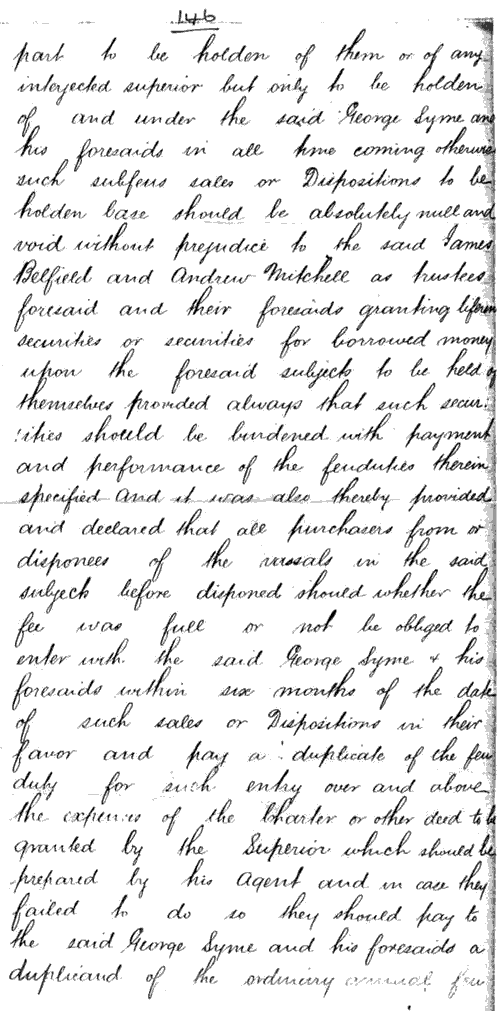 146
part to be holden of them or of any
interjected superior but only to be holden
of and under the said George Syme and
his foresaids in all time coming otherwise
such subfeus sales or Dispositions to be
holden base should be absolutely null and
void without prejudice to the said James
Belfield and Andrew Mitchell as trustees
foresaid and their foresaids granting liferent
securities or securities for borrowed money
upon the foresaid subjects to be held of
themselves provided always that such secur:
:ities should be burdened with payment
and performance of the feuduties therein
specified And it was also thereby provided
and declared that all purchasers from or
disponees of the vassals in the said
subjects before disponed should whether the
fee was full or not be obliged to
enter with the said George Syme & his
foresaids within six months of the date
of such sales or Dispositions in their
favor and pay a duplicate of the feu
duty for such entry over and above
the expenses of the Charter or other deed to be
granted by the Superior which should be
prepared by his Agent and in case they
failed to do so they should pay to
the said George Syme and his foresaids a
duplicand of the ordinary annual feu